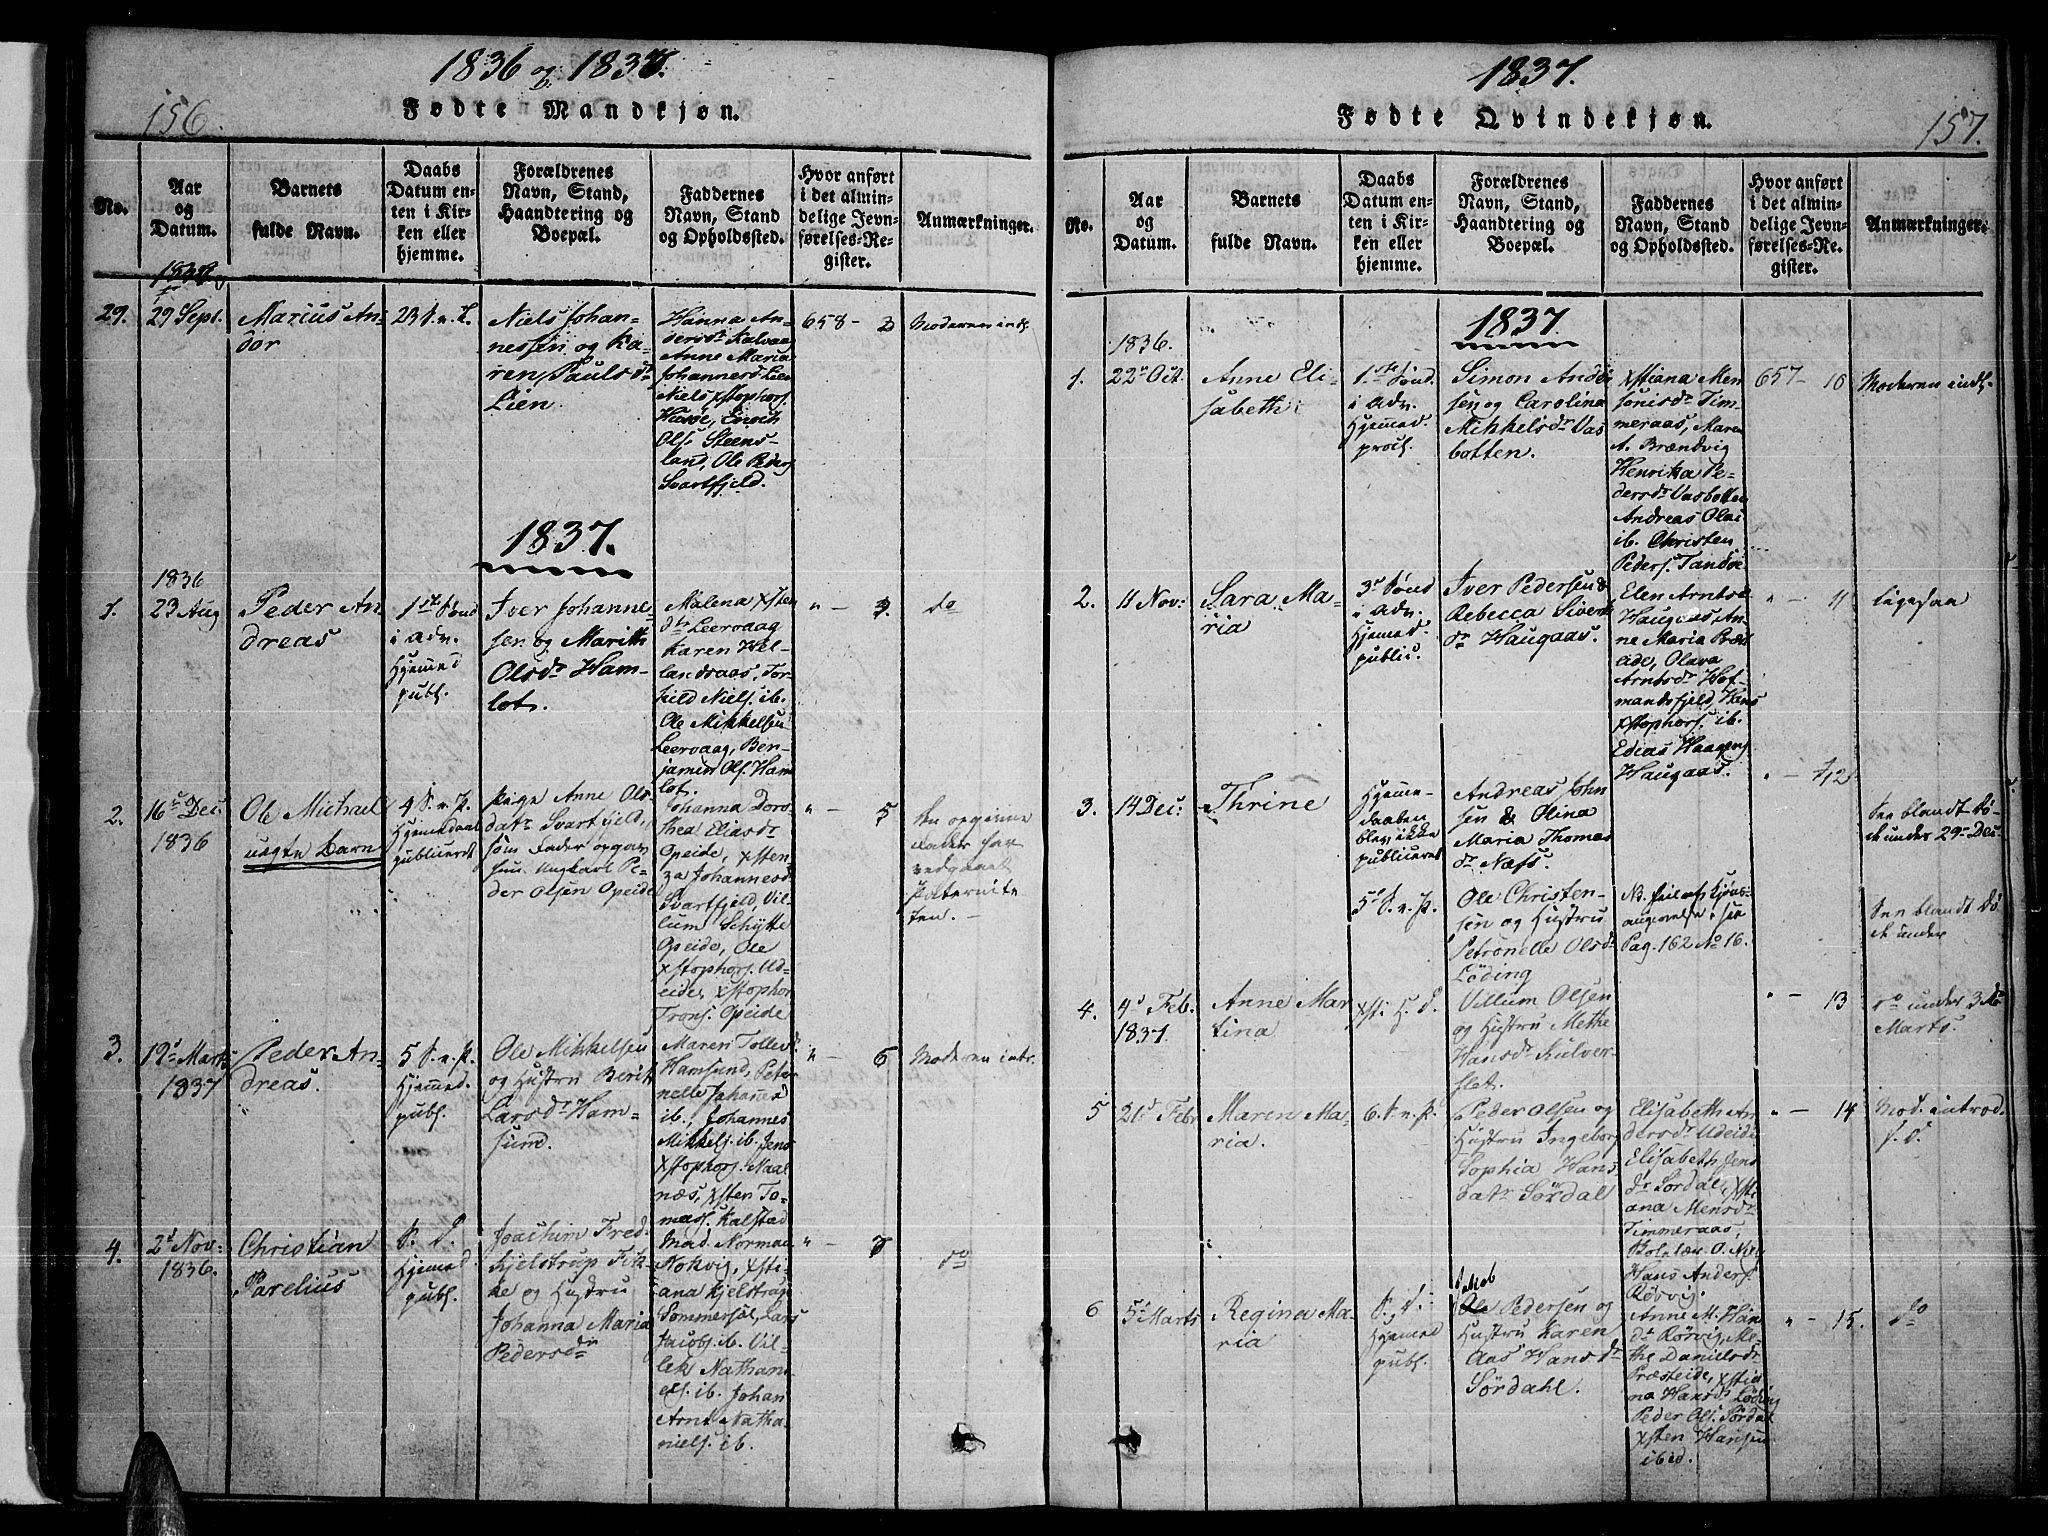 1836 og 1837.
156.
Fødte Mandkjøn.
No.
Aar
og
Datum.
Barnets
fulde Navn.
Daabs
Datum en-
ten i Kir-
ken eller
hjemme.
Forældrenes
Navn, Stand,
Haandtering og
Boepæl.
Faddernes
Navn, Stand
og Opholdssted.
Hvor anført
i det almin-
delige Jevn-
førelses-Re-
gister.
Anmærkninger.
29.
29 Sept.
Marius An-
dor
23 S. e. T.
Niels Johan-
nessen og Ka-
ren Pauls dr
Lien
Hanna An-
dersdr Kalvaa
Anne Maria
Johannesd. Lien
Niels Xstophers.
Olss. Steens-
land, Ole Peders
Svartfjeld.
658 - 2
Moderen indl.
1837.
1.
1836
23 Aug
Peder An-
dreas
1ste Sønd
i Adv.
Hjemmed
publ.
Iver Johanne-
sen og Marith
Olsdr Ham-
lot.
Malena Xsten
dtr Leervaag
Karen Hel-
landsaas, Tor-
kild Niels. ib.
Ole Mikkelsen
Leervaag, Ben-
jamin Ols. Ham
lot.
" - 3.
do
2.
16de Dec.
1836
Ole Michael
uægte Barn
4 S. e. P.
Hjemmedaab
publiceret
Pige Anne Ols
datr Svartfjeld,
som Fader opgav
hun Ungkarl Pe-
der Olsen Opeide
Johanna Doro-
thea Eliasdr
Opeide, Xsten-
za Johannesd.
Svartfjeld, Vil-
lum Schytte
Opeide, Ole
Xstophers. Ud-
eide, Xstopher
Trons. Opeide
" - 5
Den opgivne
Fader har
vedgaaet
Paternite-
ten. -
3.
19de Marts
1837
Peder An-
dreas.
5 S. e. P.
Hjemmed.
publ.
Ole Mikkelsen
og Hustru Berith
Larsdr Ham-
sund.
Maren Tollevd.
Hamsund, Petro
nelle Johannsd
ib., Johannes
Mikkels. ib. Jens
Xstophers. Naal-
næs, Xsten To-
mass. Kalstad
" - 6
Moderen intr.
4.
2d Nov:
1836.
Christian
Parelius
S. D.
Hjemmed
publ.
Joachim Fred.
Kjelstrup Fik-
ke og Hustru
Johanna Maria
Pedersdtr
Mad. Norman
Nokvig, Xsti-
ana Kjelstrup
Sommersæl, Lars
Jacobs. A. Vil-
lek Nathani-
els. ib. Johan
Arnt Natha-
niels. ib.
" - 7
do
1837.
157.
Fødte Qvindekjøn.
No.
Aar
og
Datum.
Barnets
fulde Navn.
Daabs
Datum en-
ten i Kir-
ken eller
hjemme.
Forældrenes
Navn, Stand,
Haandtering og
Boepæl.
Faddernes
Navn, Stand
og Opholdssted.
Hvor anført
i det almin-
delige Jevn-
førelses-Re-
gister.
Anmærkninger.
1837
1.
1836.
22de Oct.
Anne Eli-
sabeth
1ste Sønd.
i Adv.
Hjemmed.
procl.
Simon Andør
sen og Carolina
Mikkelsdr Vas
botten.
Xstiana Men-
sønisdr Tim-
meraas, Maren
A. Brændvig
Henrika Pe-
dersdr Vasbotten
Andreas Olai
ib. Christen
Peders. Tandøe
657 - 10
Moderen indl.
2.
11 Nov:
Sara Ma-
ria
3de Sønd
i Adv.
Hjemmed.
public.
Iver Pedersen &
Rebecca Sivert
dr Haugaas.
Elen Arntsdr
Haugaas, An-
ne Maria Præst
eide, Olava
Arntsdr Hof-
mandsfjeld, Hans
Xstophers. ib.
Edias Haagens
Haugaas.
" - 11
ligesaa
3.
14 Dec:
Thrine
Hjemme-
daaben
blev ikke
publiceret
Andreas John
sen & Olina
Maria Thomas
dr Næss.
" - 12
See blandt Dø-
de under 29de Dec.
5te S. e. P.
Ole Christen-
sen og Hustru
Petronelle Olsdr
Løding
Nb. feilagt Kjøns-
angivelse, see
Pag. 162 No 16.
See blandt Dø
de under
4.
4de Feb.
1837.
Anne Mar
tina
Xsti H. D.
Villum Olsen
og Hustru Methe
Hansdr Kulver-
slet.
" - 13
do under 3de
Marts.
5
21de Febr
Maren Ma-
ria.
6. S. e. P.
Peder Olsen og
Hustru Ingeborg
Sophia Hans
datr Sørdal
Elisabeth An-
dersdr Udeide
Elisabeth Jens
dr Sørdal, Xsti-
ana Mensdr
Timmeraas,
Hans Anders.
Rørvig.
" - 14
Mod. introd.
s. d.
6
5te Marts
Regina Ma-
ria
S. D.
Hjemmed
publ.
Jakob
Ole Pedersen og
Hustru Karen
Aas Hans dr
Sørdahl.
Anne M. Han
dr Rørvig, Me-
the Danielsdr
Præsteide, Xstia
na Hansdr Løding
Peder Ols. Sørdal
Xsten Hansen
ibid.
" - 15.
do